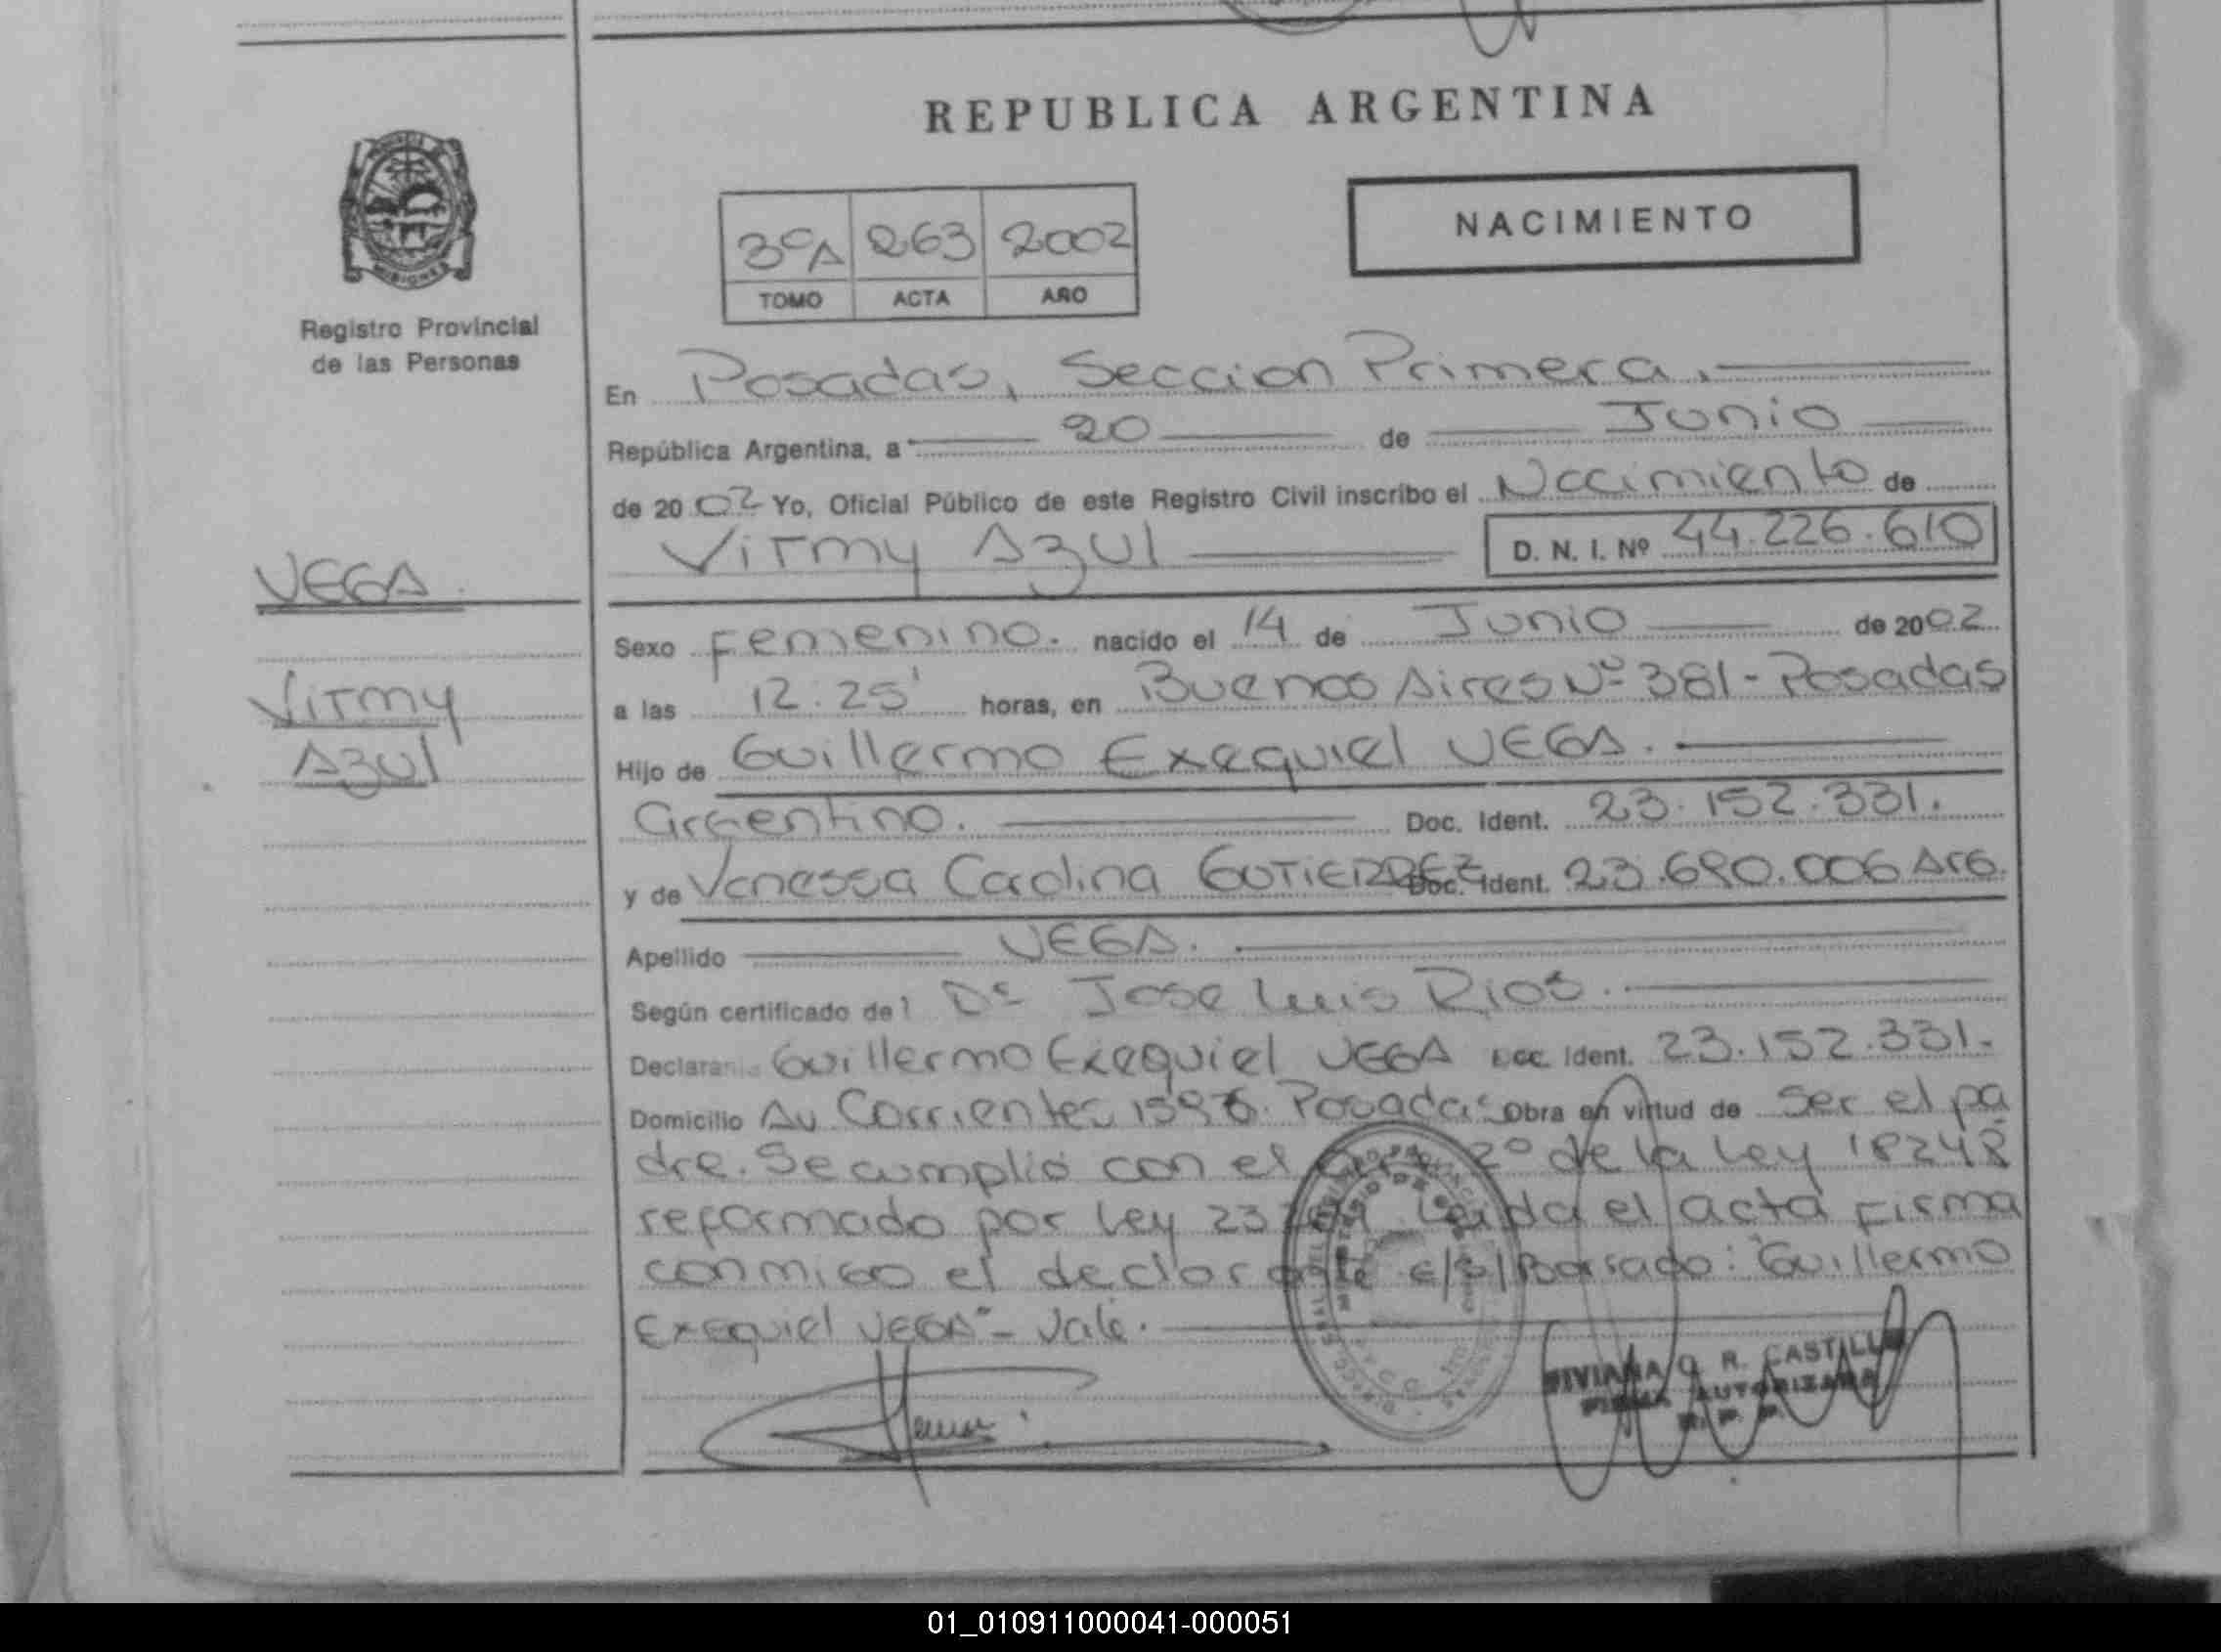 REPUBLICA ARGENTINA
NACIMIENTO
3ºA 263 2002
TOMO ACTA AÑO
Registro Provincial
de las Personas
En Posadas, Seccion Primera.
República Argentina, a 20 de Junio
de 2002 Yo, Oficial Público de este Registro Civil inscribo el Nacimiento de
Virmy Azul D. N. I. Nº 44.226.610
VEGA
Virmy
Azul
Sexo Femenino. nacido el 14 de Junio de 2002
a las 12.25' horas, en Buenos Aires Nº 381 - Posadas
Hijo de Guillermo Exequiel VEGA.
argentino. Doc. Ident. 23.152.331.
y de Vanessa Carolina GUTIERREZ Doc. Ident. 23.690.006 Arg.
Apellido VEGA.
Según certificado del Dr Jose Luis Rios.
Declarante Guillermo Exequiel VEGA Doc. Ident. 23.152.331.
Domicilio Av. Corrientes Posadas Obra en virtud de ser el pa
dre. Se cumplió con el 2º de la Ley 18248
reformado por Ley Leida el acta firma
conmigo el declarante e/s/Borsado: "Guillermo
Exequiel VEGA" - Vale.
VIVIANA R. CASTILLO
FIRMA AUTORIZADA
R. P. P.
01_010911000041-000051